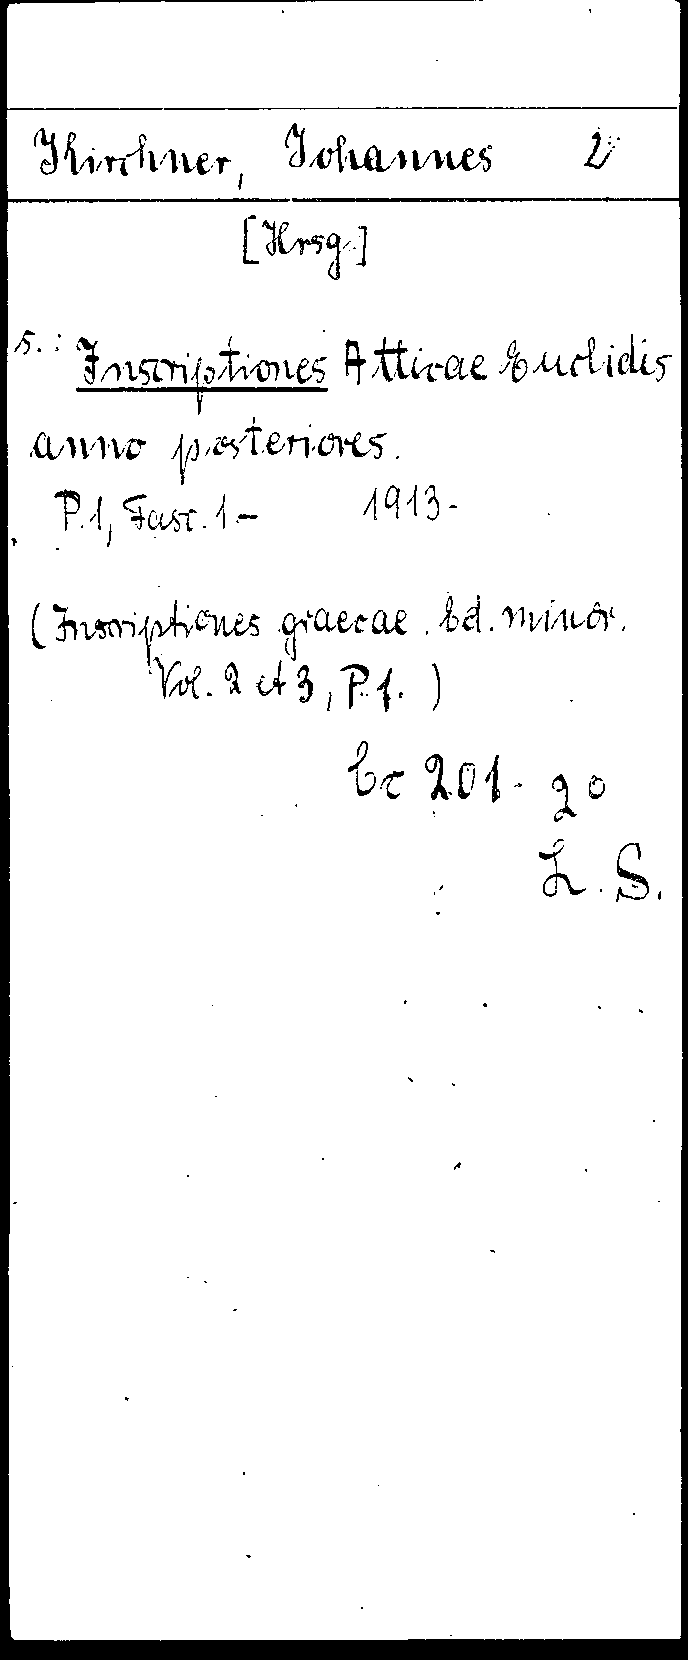 Kirchner, Johannes 2
[Hrsg.]
s.: Inscriptiones Atticae Euclidis
anno posteriores.
P.1, Fasc.1- 1913-
(Inscriptiones graecae. Ed. minor.
Vol. 2 et 3, P.1.)
bc 201-20
L.S.